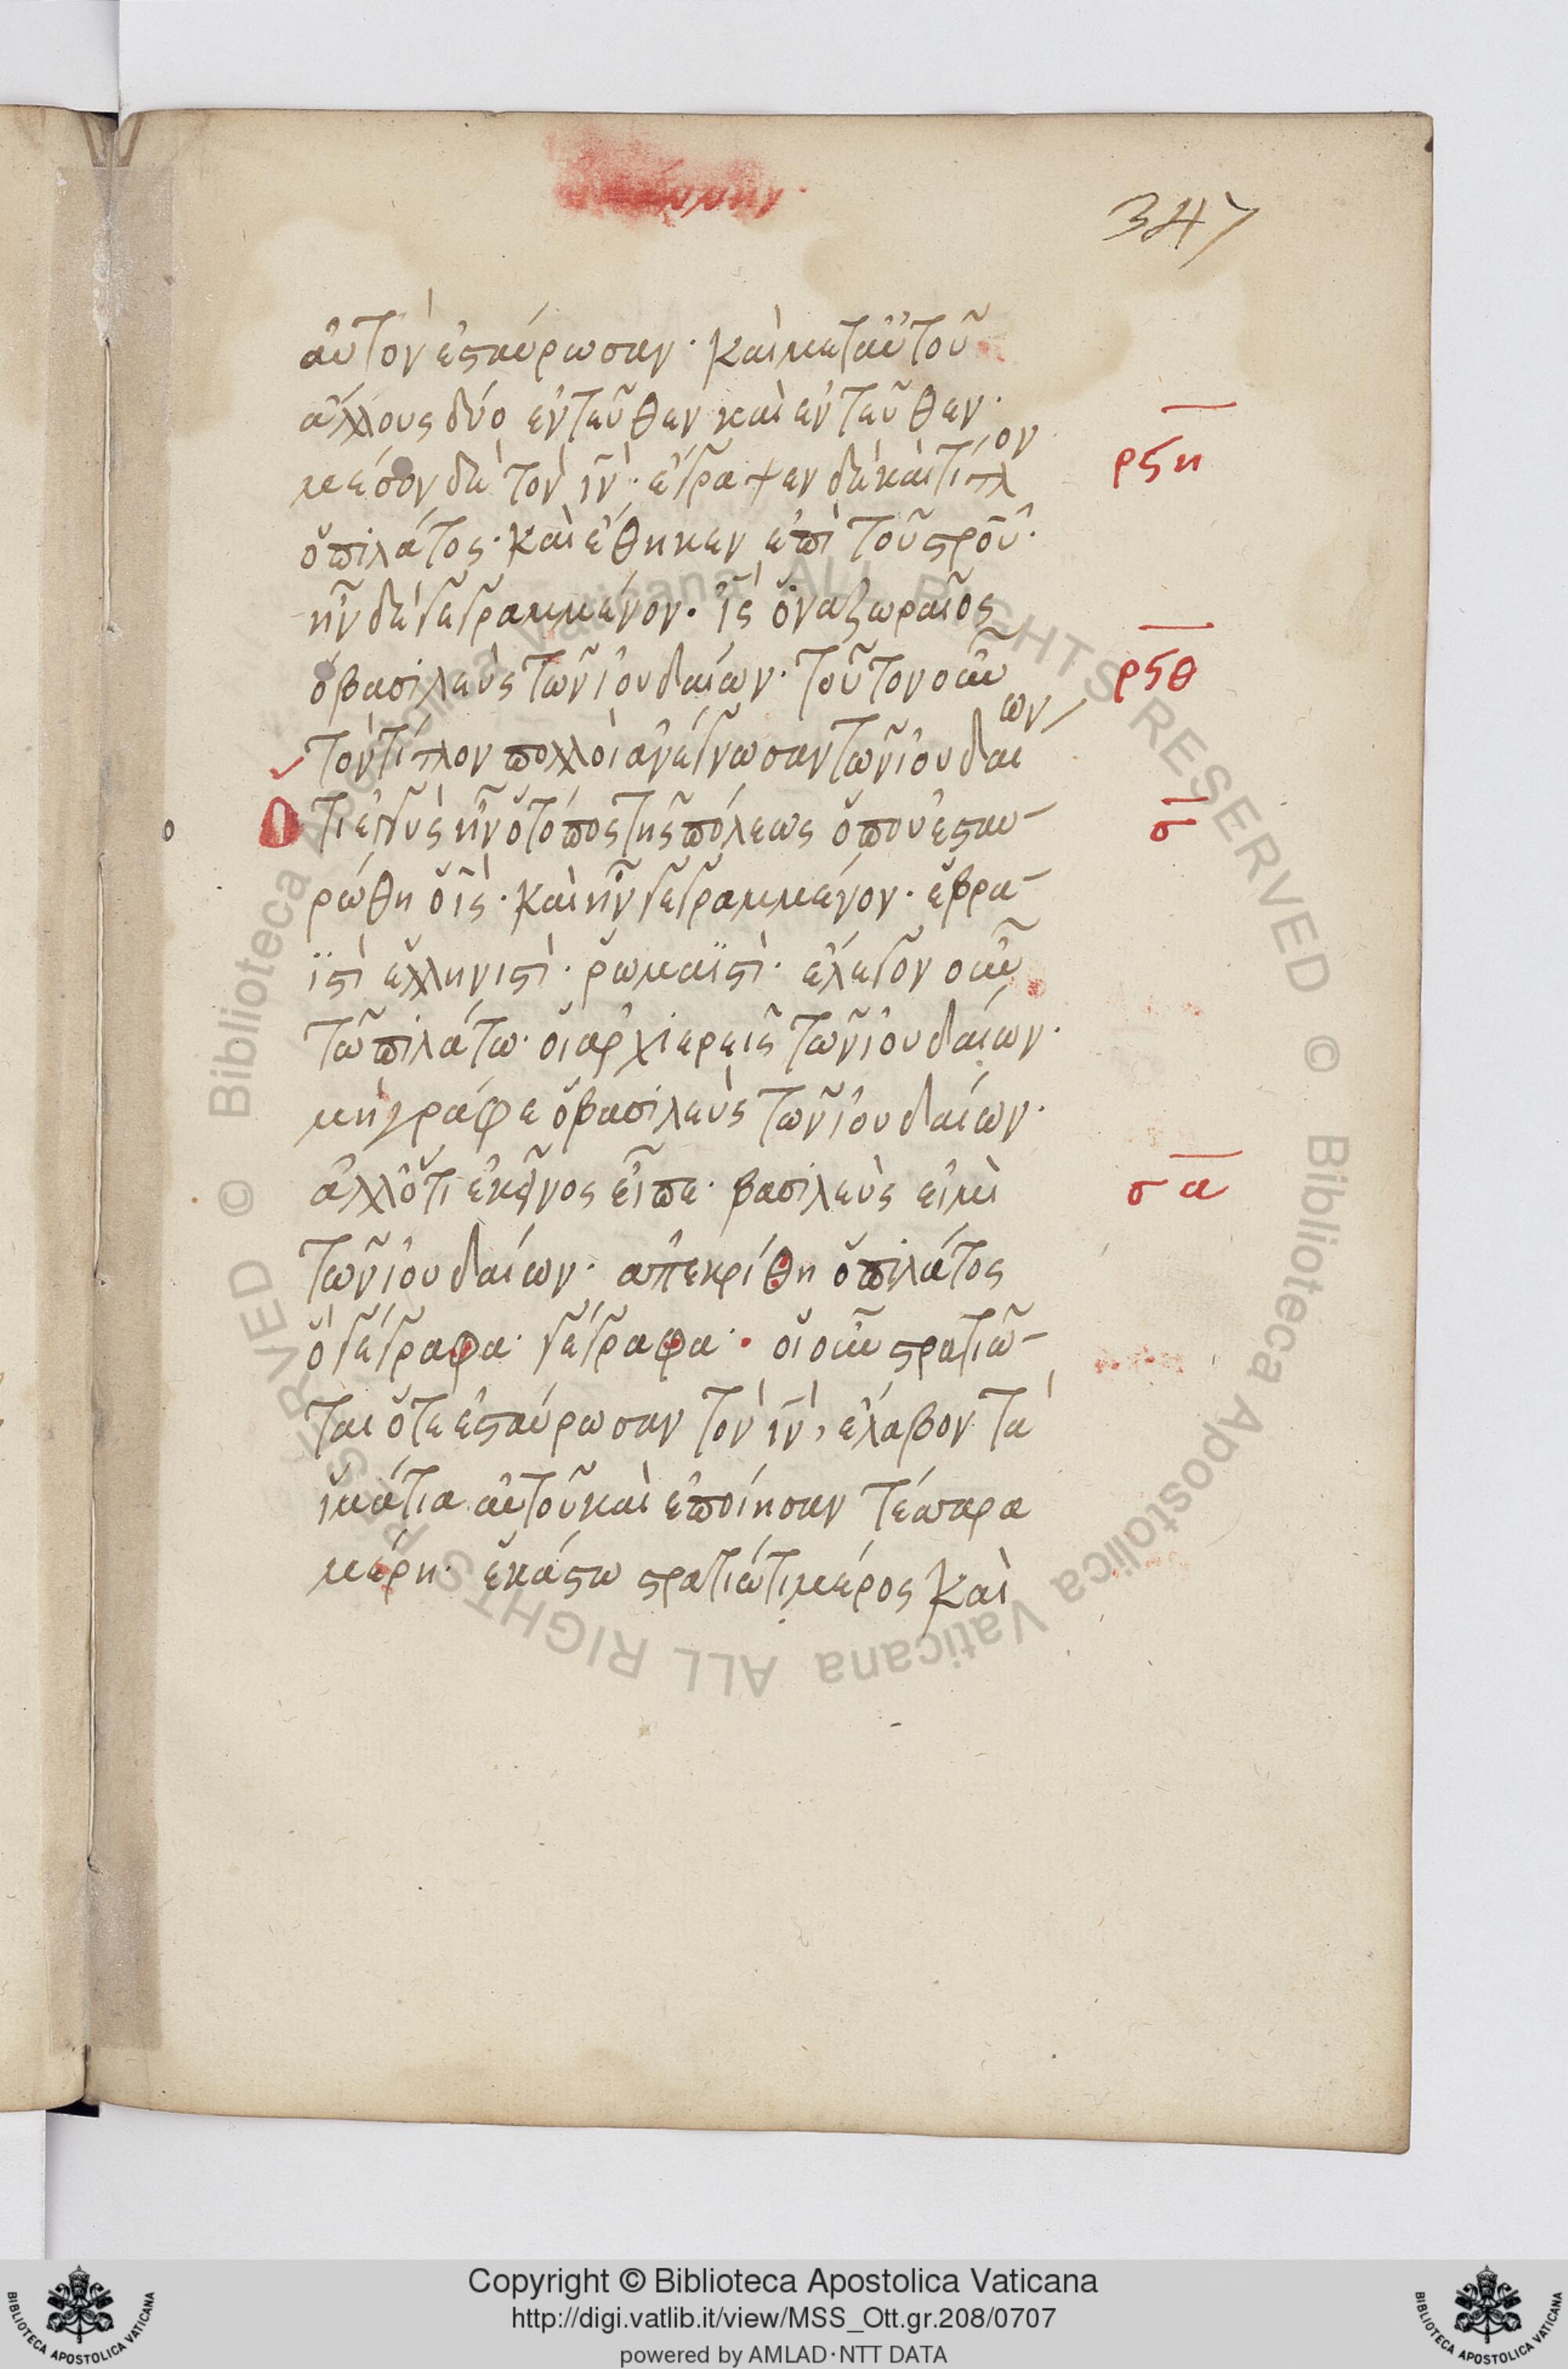 347
αὐτὸν ἐσταύρωσαν· καὶ μετ αὐτοῦ
ἄλλους δύο ἐντεῦθεν καὶ ἐντεῦθεν·
μέσον δὲ τὸν ιν· ἔγραψεν δὲ καὶ τίτλον
ρϟη
ὁ πιλάτος· καὶ ἔθηκεν ἐπὶ τοῦ στροῦ·
ἦν δὲ γεγραμμένον· ις ὁ ναζωραῖος
ὁ βασιλεὺς τῶν ἰουδαίων· τοῦτον οὖν
ρϟθ
τὸν τίτλον πολλοὶ ἀνέγνωσαν τῶν ἰουδαίων
ὅτι ἐγγὺς ἦν ὁ τόπος τῆς πόλεως ὅπου ἐσταυ-
σ
ρώθη ὁ ις· καὶ ἦν γεγραμμένον· ἑβρα-
ϊστὶ ἑλληνιστὶ· ῥωμαϊστὶ· ἔλεγον οὖν
τῶ πιλάτω· οἱ ἀρχιερεῖς τῶν ἰουδαίων·
μὴ γράφε ὁ βασιλεὺς τῶν ἰουδαίων·
ἀλλ ὅτι ἐκεῖνος εἶπε· βασιλεὺς εἰμὶ
σα
τῶν ἰουδαίων· ἀπεκρίθη ὁ πιλάτος
ὃ γέγραφα· γέγραφα· οἱ οὖν στρατιῶ-
ται ὅτε ἐσταύρωσαν τὸν ιν, ἔλαβον τὰ
ἱμάτια αὐτοῦ καὶ ἐποίησαν τέσσαρα
μέρη· ἑκάστω στρατιώτι μέρος καὶ
© Biblioteca Apostolica Vaticana ALL RIGHTS RESERVED © Biblioteca Apostolica Vaticana ALL RIGHTS RESERVED
Copyright © Biblioteca Apostolica Vaticana
http://digi.vatlib.it/view/MSS_Ott.gr.208/0707
powered by AMLAD·NTT DATA
BIBLIOTECA APOSTOLICA VATICANA
BIBLIOTECA APOSTOLICA VATICANA